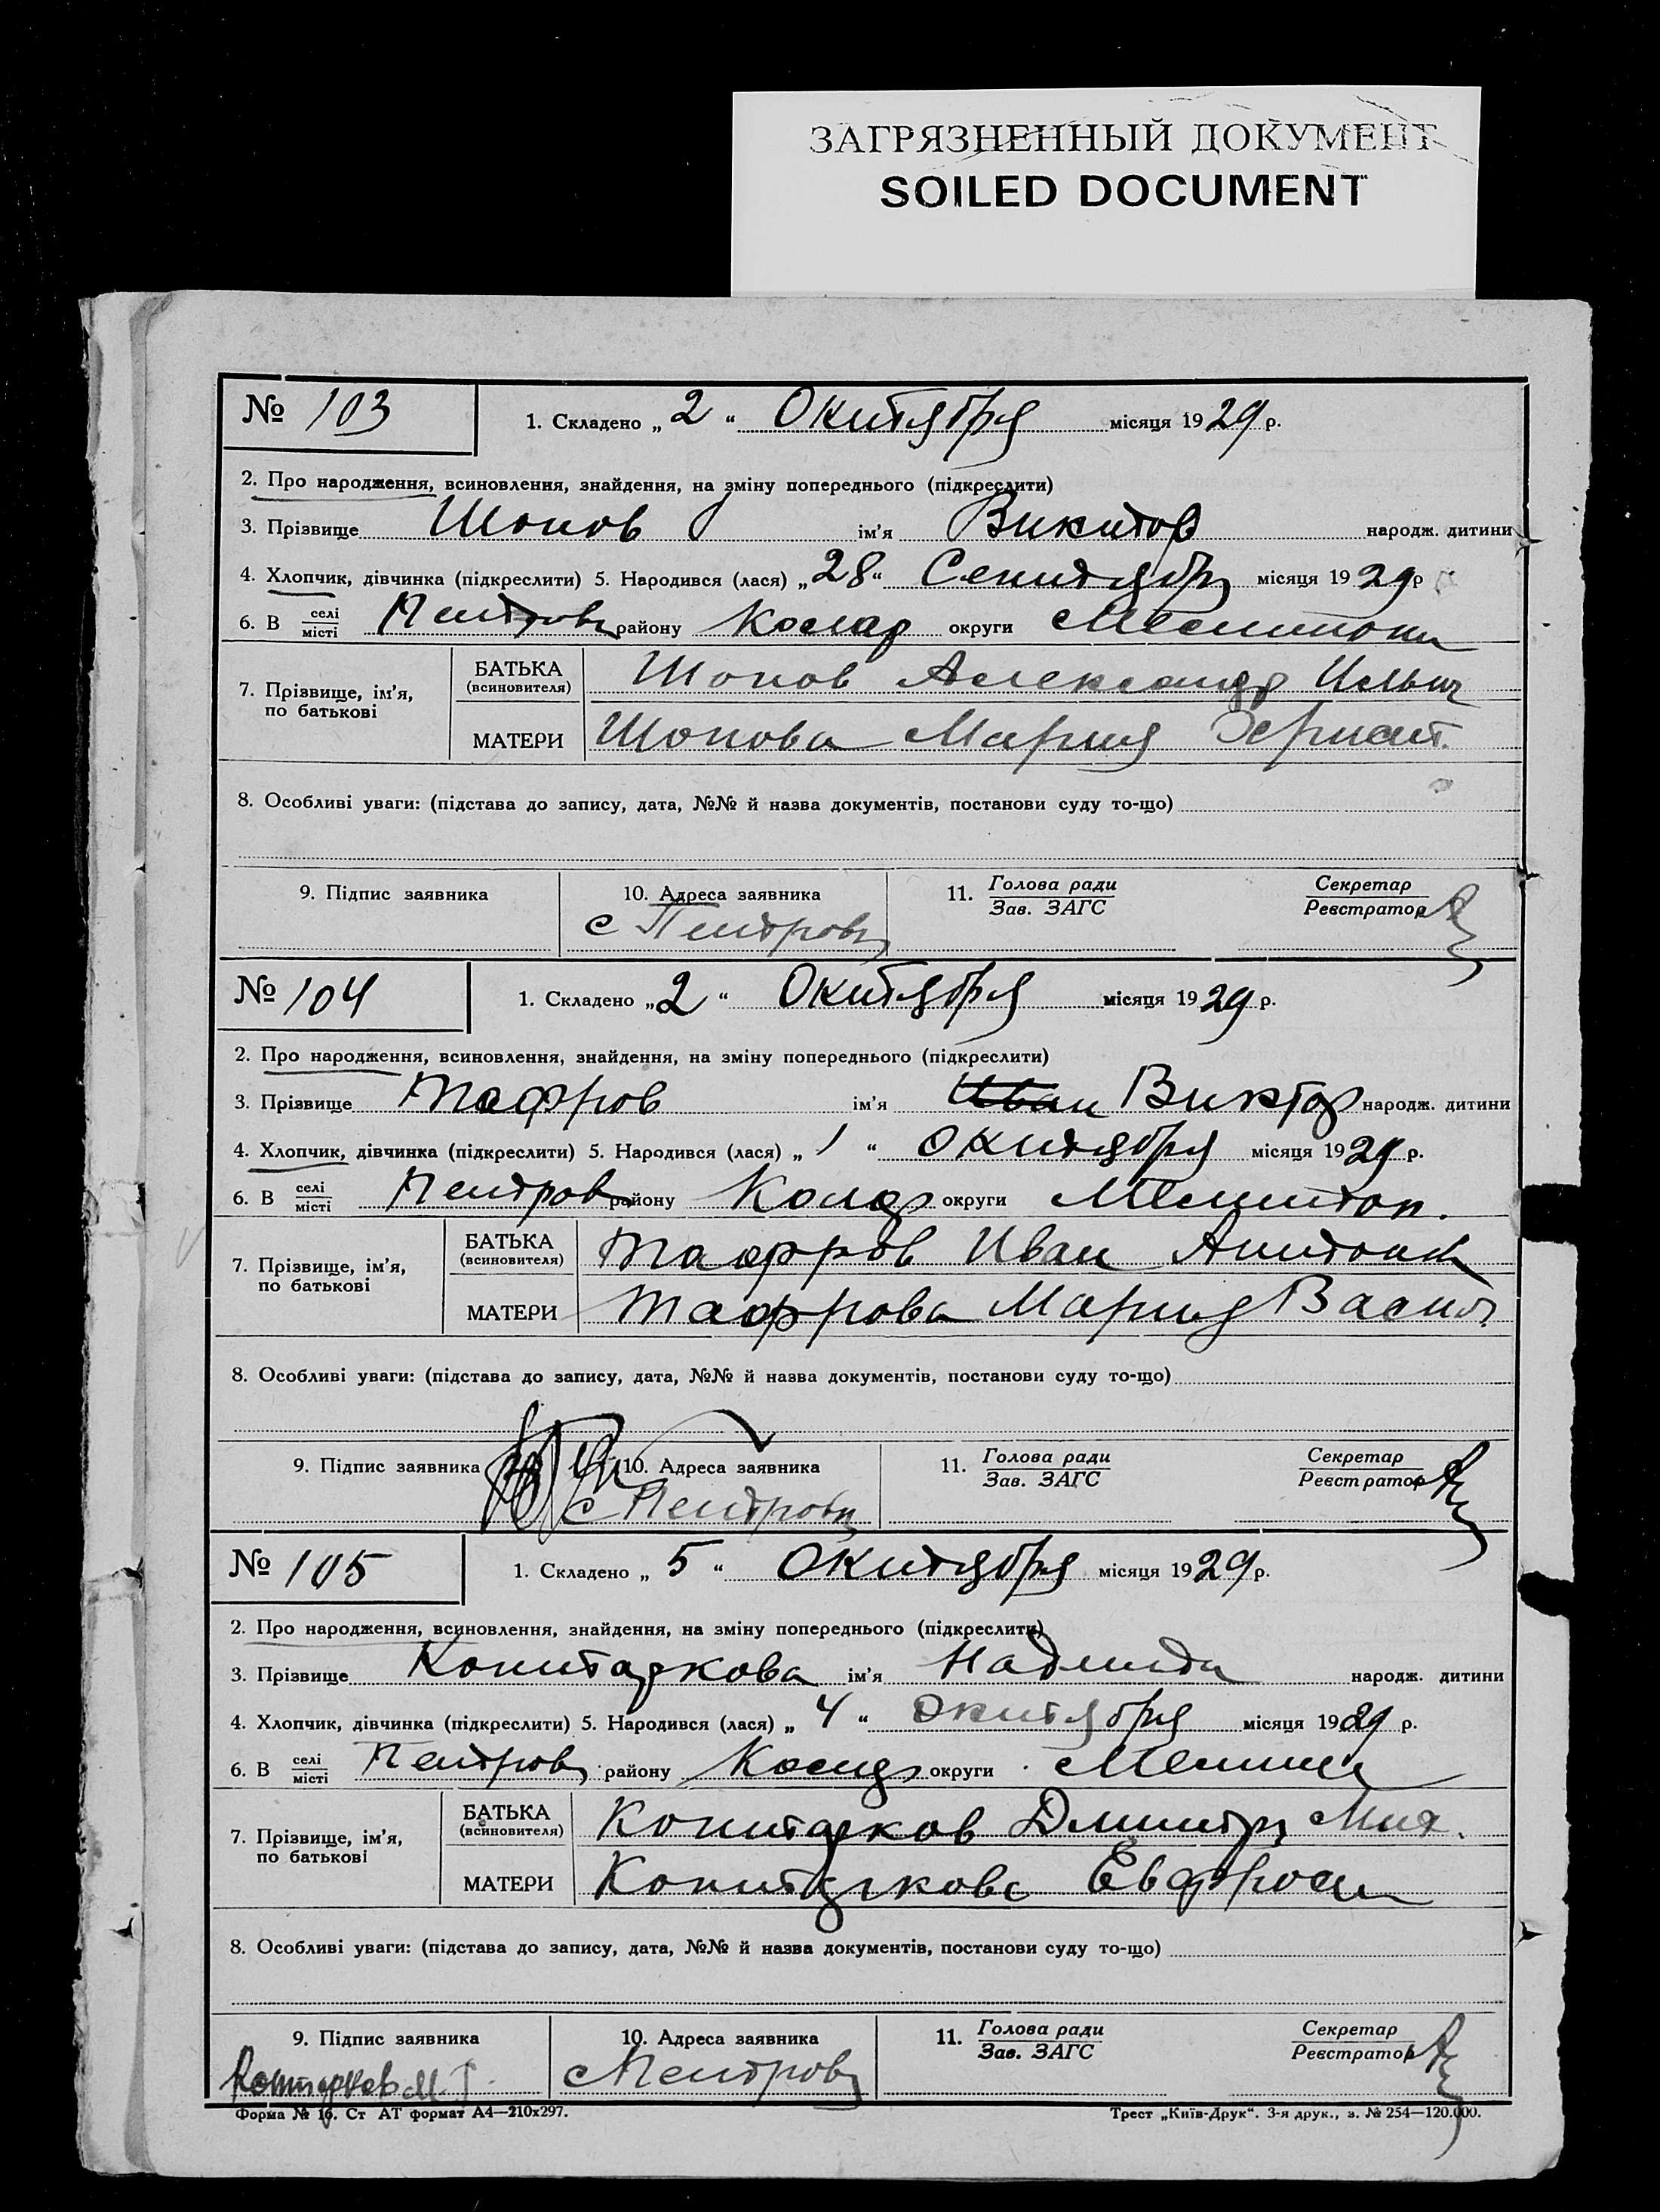 ЗАГРЯЗНЕННЫЙ ДОКУМЕНТ
SOILED DOCUMENT
№ 103 1. Складено „ 2 “ Октября місяця 1929 р.
2. Про народження, всиновлення, знайдення, на зміну попереднього (підкреслити)
3. Прізвище Шопов ім'я Виктор народж. дитини
4. Хлопчик, дівчинка (підкреслити) 5. Народився (лася) „ 28 “ Сентября місяця 1929 р
6. В селі/місті Петровк району округи
7. Прізвище, ім'я, по батькові БАТЬКА (всиновителя) Шопов Александр Ильич
МАТЕРИ Шопова Мария
8. Особливі уваги: (підстава до запису, дата, №№ й назва документів, постанови суду то-що)
9. Підпис заявника 10. Адреса заявника 11. Голова ради/Зав. ЗАГС Секретар/Реєстратор
с Петровк
№ 104 1. Складено „ 2 “ Октября місяця 1929 р.
2. Про народження, всиновлення, знайдення, на зміну попереднього (підкреслити)
3. Прізвище Тафров ім'я Иван Виктор народж. дитини
4. Хлопчик, дівчинка (підкреслити) 5. Народився (лася) „ 1 “ Октября місяця 1929 р.
6. В селі/місті Петровк району округи Мелитоп.
7. Прізвище, ім'я, по батькові БАТЬКА (всиновителя) Тафров Иван Антон
МАТЕРИ Тафрова Мария Васил.
8. Особливі уваги: (підстава до запису, дата, №№ й назва документів, постанови суду то-що)
9. Підпис заявника 10. Адреса заявника 11. Голова ради/Зав. ЗАГС Секретар/Реєстратор
с Петровк
№ 105 1. Складено „ 5 “ Октября місяця 1929 р.
2. Про народження, всиновлення, знайдення, на зміну попереднього (підкреслити)
3. Прізвище Контаркова ім'я Надежда народж. дитини
4. Хлопчик, дівчинка (підкреслити) 5. Народився (лася) „ 4 “ Октября місяця 1929 р.
6. В селі/місті Петровк району округи
7. Прізвище, ім'я, по батькові БАТЬКА (всиновителя) Контарков Дмитри Мих.
МАТЕРИ Контаркова Евфроси
8. Особливі уваги: (підстава до запису, дата, №№ й назва документів, постанови суду то-що)
9. Підпис заявника 10. Адреса заявника 11. Голова ради/Зав. ЗАГС Секретар/Реєстратор
с Петровк
Форма № 16. Ст АТ формат А4—210х297. Трест „Київ-Друк“. 3-я друк., з. № 254—120.000.